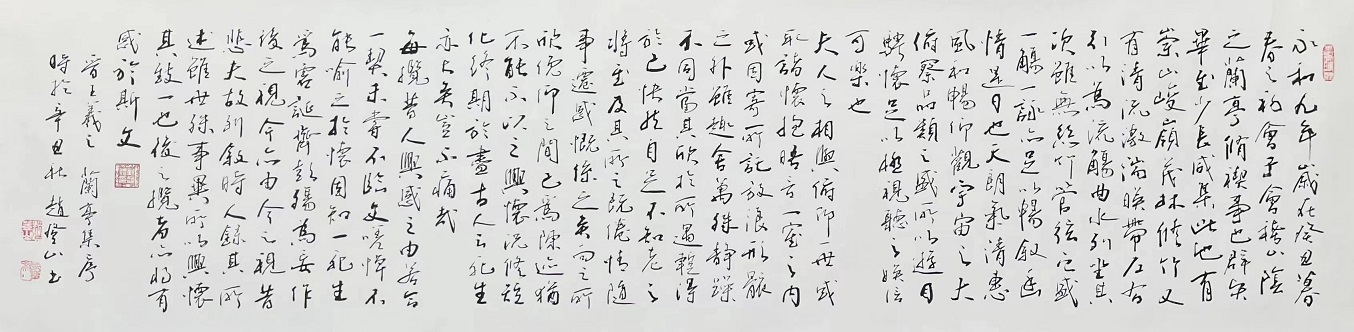 永和九年歲在癸丑暮
春之初會于會稽山陰
之蘭亭脩禊事也群賢
畢至少長咸集此地有
崇山峻嶺茂林脩竹又
有清流激湍暎帶左右
引以為流觴曲水列坐其
次雖無絲竹管弦之盛
一觴一詠亦足以暢敘幽
情是日也天朗氣清惠
風和暢仰觀宇宙之大
俯察品類之盛所以遊目
騁懷足以極視聽之娛信
可樂也
夫人之相與俯仰一世或
取諸懷抱晤言一室之內
或因寄所託放浪形骸
之外雖趣舍萬殊靜躁
不同當其欣於所遇輒得
於己怏然自足不知老之
將至及其所之既倦情隨
事遷感慨係之矣向之所
欣俛仰之間已為陳迹猶
不能不以之興懷況脩短
化終期於盡古人云死生
亦大矣豈不痛哉
每攬昔人興感之由若合
一契未嘗不臨文嗟悼不
能喻之於懷固知一死生
為虛誕齊彭殤為妄作
後之視今亦由今之視昔
悲夫故列敘時人錄其所
述雖世殊事異所以興懷
其致一也後之攬者亦將有
感於斯文
晉王羲之蘭亭集序
時於辛丑秋趙登山書